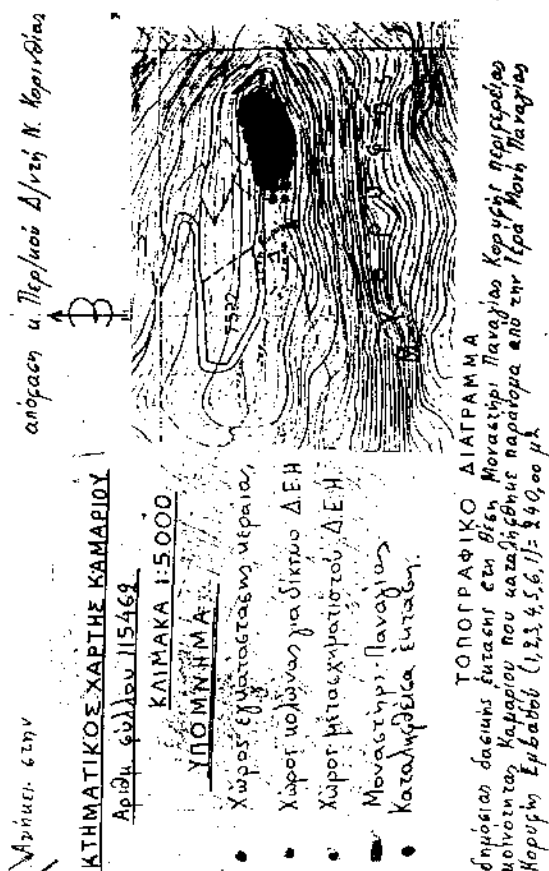 Ανήκει στην
απόφαση κ. Περ/κού Δ/ντή Ν. Κορινθίας
Β
ΚΤΗΜΑΤΙΚΟΣ ΧΑΡΤΗΣ ΚΑΜΑΡΙΟΥ
Αριθμ φύλλου 115469
ΚΛΙΜΑΚΑ 1:5.000
ΥΠΟΜΝΗΜΑ
Χώρος εγκατάστασης κεραίας,
Χώρος κολώνας για δίκτυο Δ.Ε.Η
Χώρος μετασχηματιστού Δ.Ε.Η
Μοναστήρι Παναγίας
Καταληφθείσα έκταση.
ΤΟΠΟΓΡΑΦΙΚΟ ΔΙΑΓΡΑΜΜΑ
δημόσιας δασικής έκτασης στη θέση Μοναστήρι Παναγίας Κορυφής περιφερείας
κοινότητας Καμαρίου που καταλήφθηκε παράνομα από την Ιερά Μονή Παναγίας
Κορυφής Εμβαδού (1,2,3,4,5,6,1)= 240,00 μ2